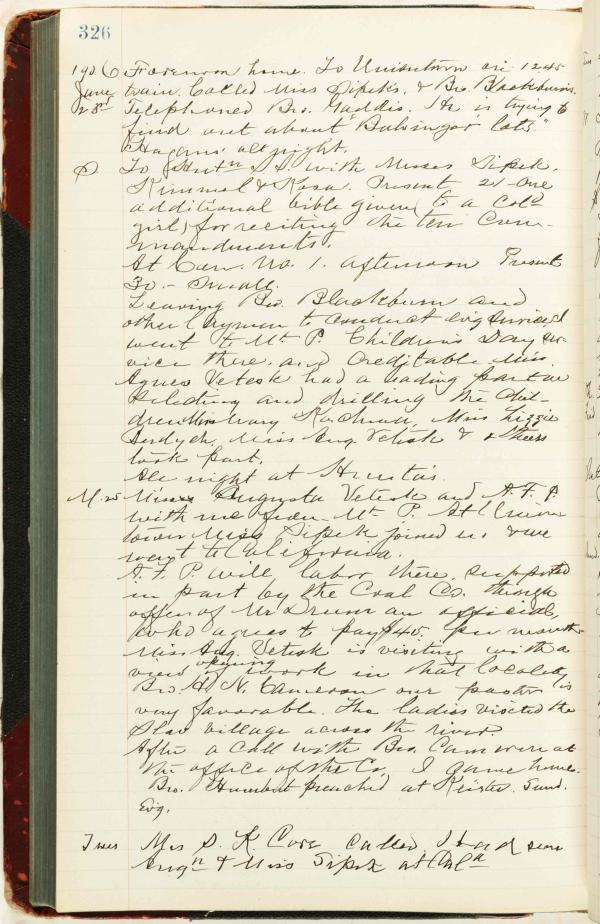 326
1906 Forenoon home. To Uniontown on 12 45
June train. Called Miss Sipek's & Bro. Blackburn's.
23rd Telephoned Bro. Gaddis. He is trying to
find out about "Balsinger lots."
Hagans' all night.
S To S. S. with Misses Sipek.
Kimmel & Rosa. Present 21 - One
additional bible given (to a Cold
girl) for reciting the ten Com-
mandments.
At Cam. No. 1. afternoon Present
30. - Small.
Leaving Bro. Blackburn and
other laymen to conduct evg service, I
went to Mt P. Children's Day ser-
vice there, and creditable. Miss
Agnes Vetesk had a leading part in
selecting and drilling the chil-
dren. Miss Mary Miss Lizzie
Miss Aug. Vetesk & others
took part.
All night at
M. 25 Misses Augusta Vetesk and A. F. P.
with me from Mt P. At Union-
town Miss Sipek joined us & we
went to California.
A. F. P. will labor there, supported
in part by the Coal Co. through
offer of Mr Drum an official,
who agrees to pay $45. per month
Miss Aug. Vetesk is visiting with a
view opening of work in that locality
Bro. H. N. Cameron our pastor is
very favorable. The ladies visited the
Slav village across the river.
After a call with Bro. Cameron at
the office of the Co, I came home.
Bro. Humbert preached at Keister. Sund.
Evg.
Tues Mrs S. K. Cove called. I had seen
& Miss Sipek at Cala